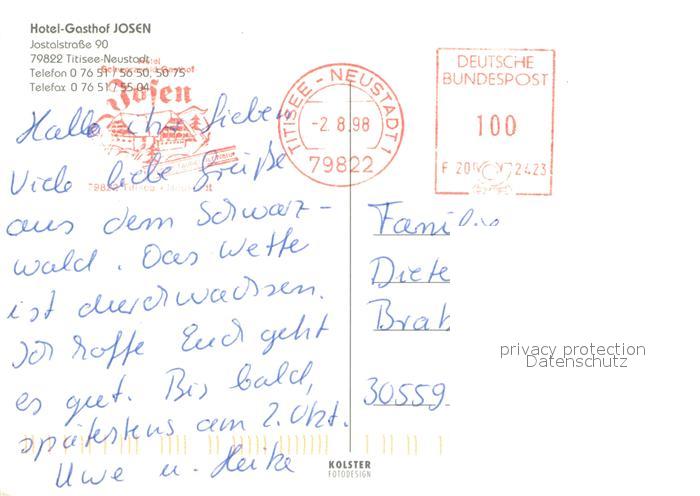 Hotel-Gasthof JOSEN
Jostalstraße 90
79822 Titisee-Neustadt
Telefon 0 76 51 / 56 50, 50 75
Telefax 0 76 51 / 55 04
Hotel
Josen
79822 Titisee-Neustadt
TITISEE-NEUSTADT 1
-2.8.98
79822
DEUTSCHE
BUNDESPOST
100
F 20 2423
Hallo ihr Lieben
Viele liebe Grüße
aus dem Schwarz-
wald. Das Wetter
ist durchwachsen.
Ich hoffe Euch geht
es gut. Bis bald,
spätestens am 2. Okt.
Uwe u. Heike
Familie
Diete
Brat
30559
privacy protection
Datenschutz
KOLSTER
FOTODESIGN